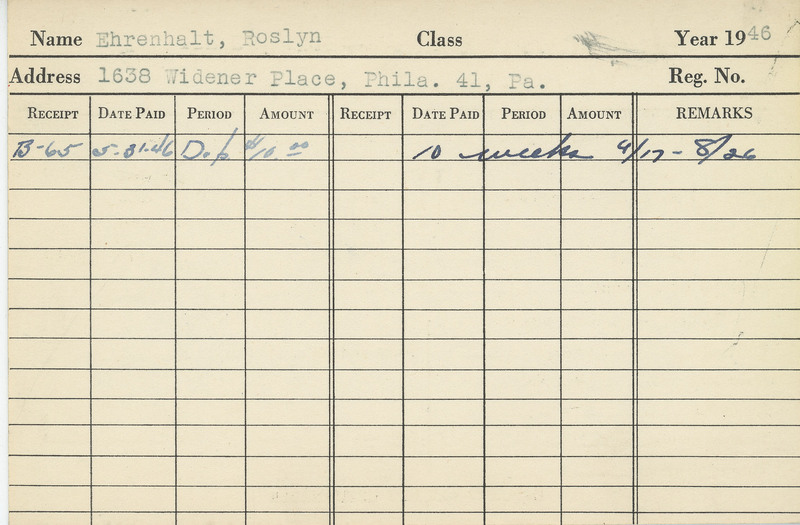 Name Ehrenhalt, Roslyn Class Year 1946
Address 1638 Widener Place, Phila. 41, Pa. Reg. No.
RECEIPT DATE PAID PERIOD AMOUNT RECEIPT DATE PAID PERIOD AMOUNT REMARKS
B-65 5-31-46 Dep $10.00 10 weeks 4/17 - 8/26